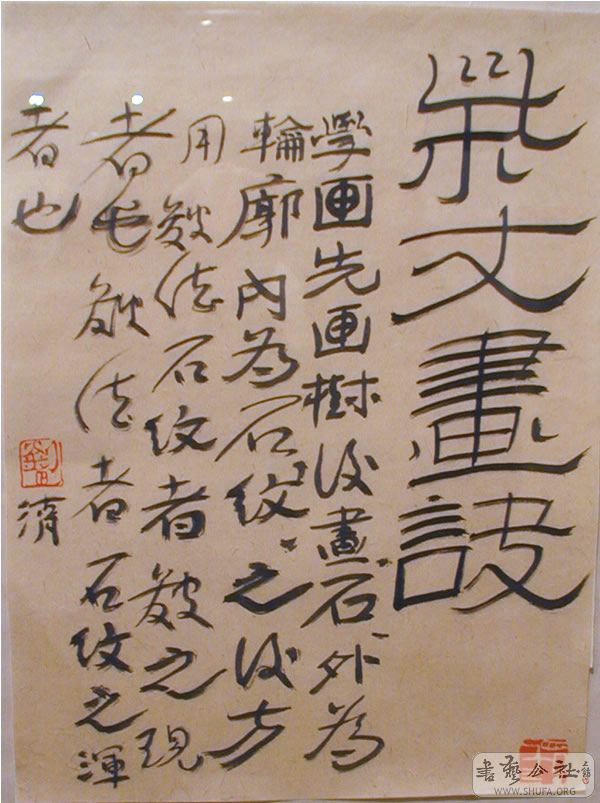 柴丈畫訣
學画先画樹後畫石外為
輪廓內為石紋〻〻之後方
用皴法石紋者皴之現
者也皴法者石紋之渾
者也
濟
書藝公社
WWW.SHUFA.ORG